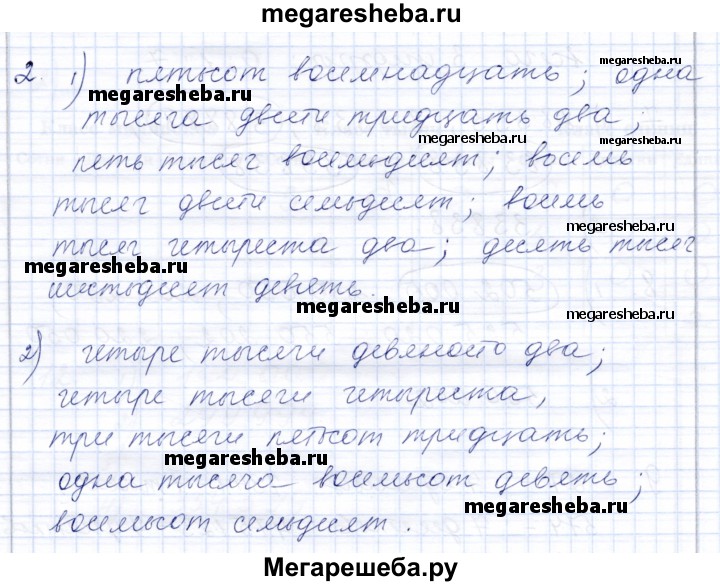 megaresheba.ru
2. 1) пятьсот восемнадцать; одна
megaresheba.ru
megaresheba.ru
тысяча двести тридцать два;
megaresheba.ru
пять тысяч восемьдесят; восемь
тысяч двести семьдесят; восемь
megaresheba.ru
тысяч четыреста два; десять тысяч
megaresheba.ru
шестьдесят девять.
megaresheba.ru
megaresheba.ru
2) четыре тысячи девяносто два;
megaresheba.ru
четыре тысячи четыреста,
три тысячи пятьсот тридцать;
megaresheba.ru
одна тысяча восемьсот девять;
megaresheba.ru
восемьсот семьдесят.
Мегарешеба.ру